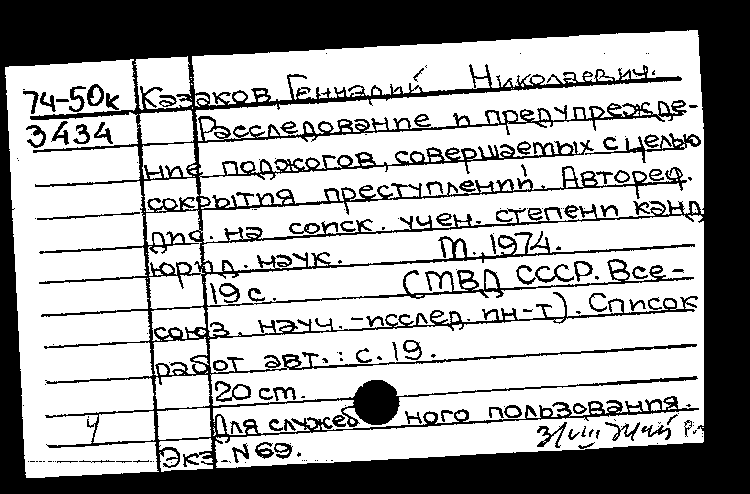 74-50к Казаков, Геннадий Николаевич.
3434 Расследование и предупрежде-
ние поджогов, совершаемых с целью
сокрытия преступлений. Автореф.
дис. на соиск. учен. степени канд.
юрид. наук. М., 1974.
19 с. (МВД СССР. Все-
союз. науч.-исслед. ин-т). Список
работ авт.: с. 19.
20 см.
Для служебного пользования.
Экз. N 69.